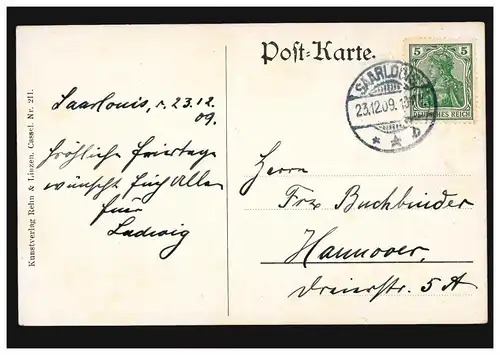 Post-Karte.
5 5
DEUTSCHES REICH
SAARLOUIS
23.12.09.
Saarlouis, d. 23.12.
09.
Fröhliche Feiertage
wünscht Euch Allen
Euer
Ludwig
Herrn
Frz Buchbinder
Hannover.
Dreierstr. 5 A
Kunstverlag Rehn & Linzen, Cassel. Nr. 211.